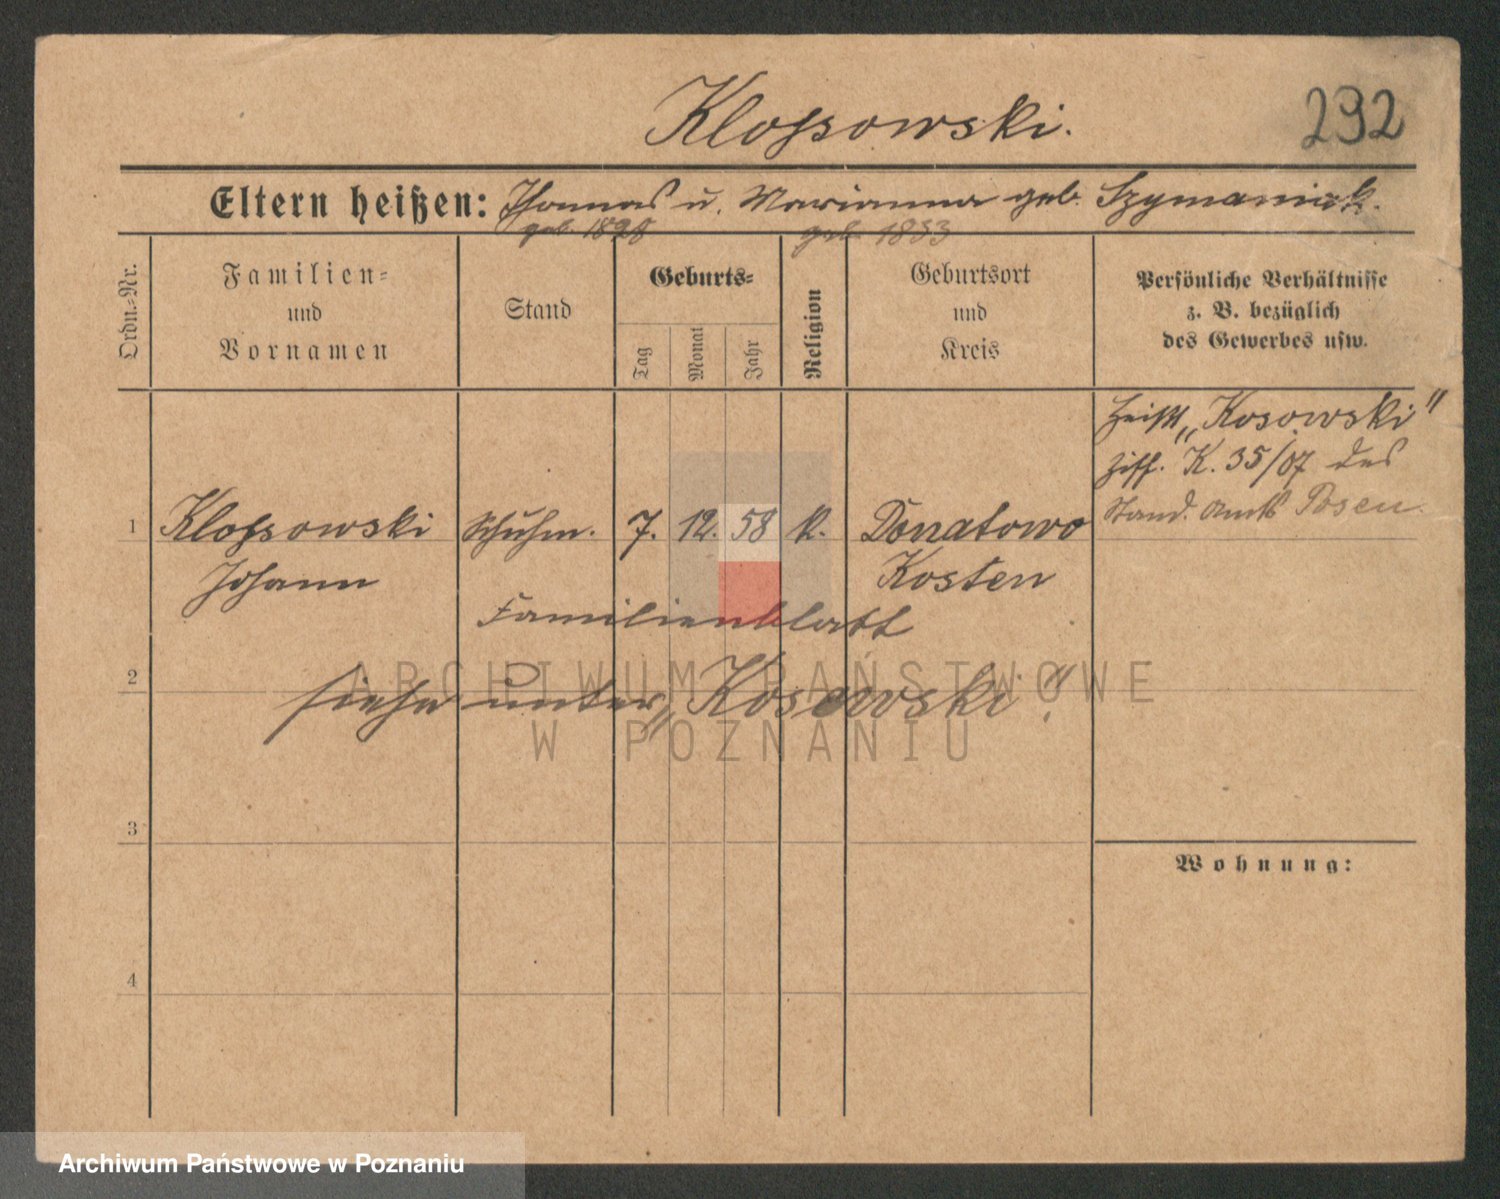 Klossowski.
292
Eltern heißen: Thomas u. Marianna geb. Szymaniak.
geb. 1828 geb. 1833
Ordn.-Nr.
Familien-
und
Vornamen
Stand
Geburts-
Tag
Monat
Jahr
Religion
Geburtsort
und
Kreis
Persönliche Verhältnisse
z. B. bezüglich
des Gewerbes usw.
heißt „Kosowski"
Ziff. K. 35/07 des
Stand. Amts Posen.
1 Klossowski Schuhm. 7. 12. 58 k. Donatowo
Johann Kosten
Familienblatt
2
siehe unter „Kosowski".
ARCHIWUM PAŃSTWOWE
W POZNANIU
3
Wohnung:
4
Archiwum Państwowe w Poznaniu